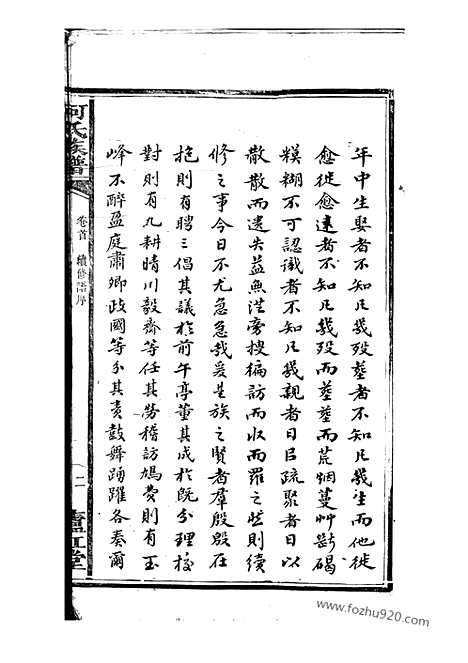 年中生娶者不知凡幾歿葬者不知凡幾生而他徙
愈徙愈遠者不知凡幾歿而葬葬而荒烟蔓艸斷碣
糢糊不可認識者不知凡幾親者日疏聚者日以
散散而遺失益無從旁搜徧訪而收而羅之然則續
修之事今日不尤急急哉爰是族之賢者羣殷殷在
抱則有聘三倡其議於前午亭董其成於既分理校
對則有九耕晴川毅齋等任其勞稽訪鳩費則有玉
峰不醉盈庭肅卿政國等分其責鼓舞踴躍各奏爾
何氏族譜
卷首 續修譜序
二
廬江堂
www.fozhu920.com